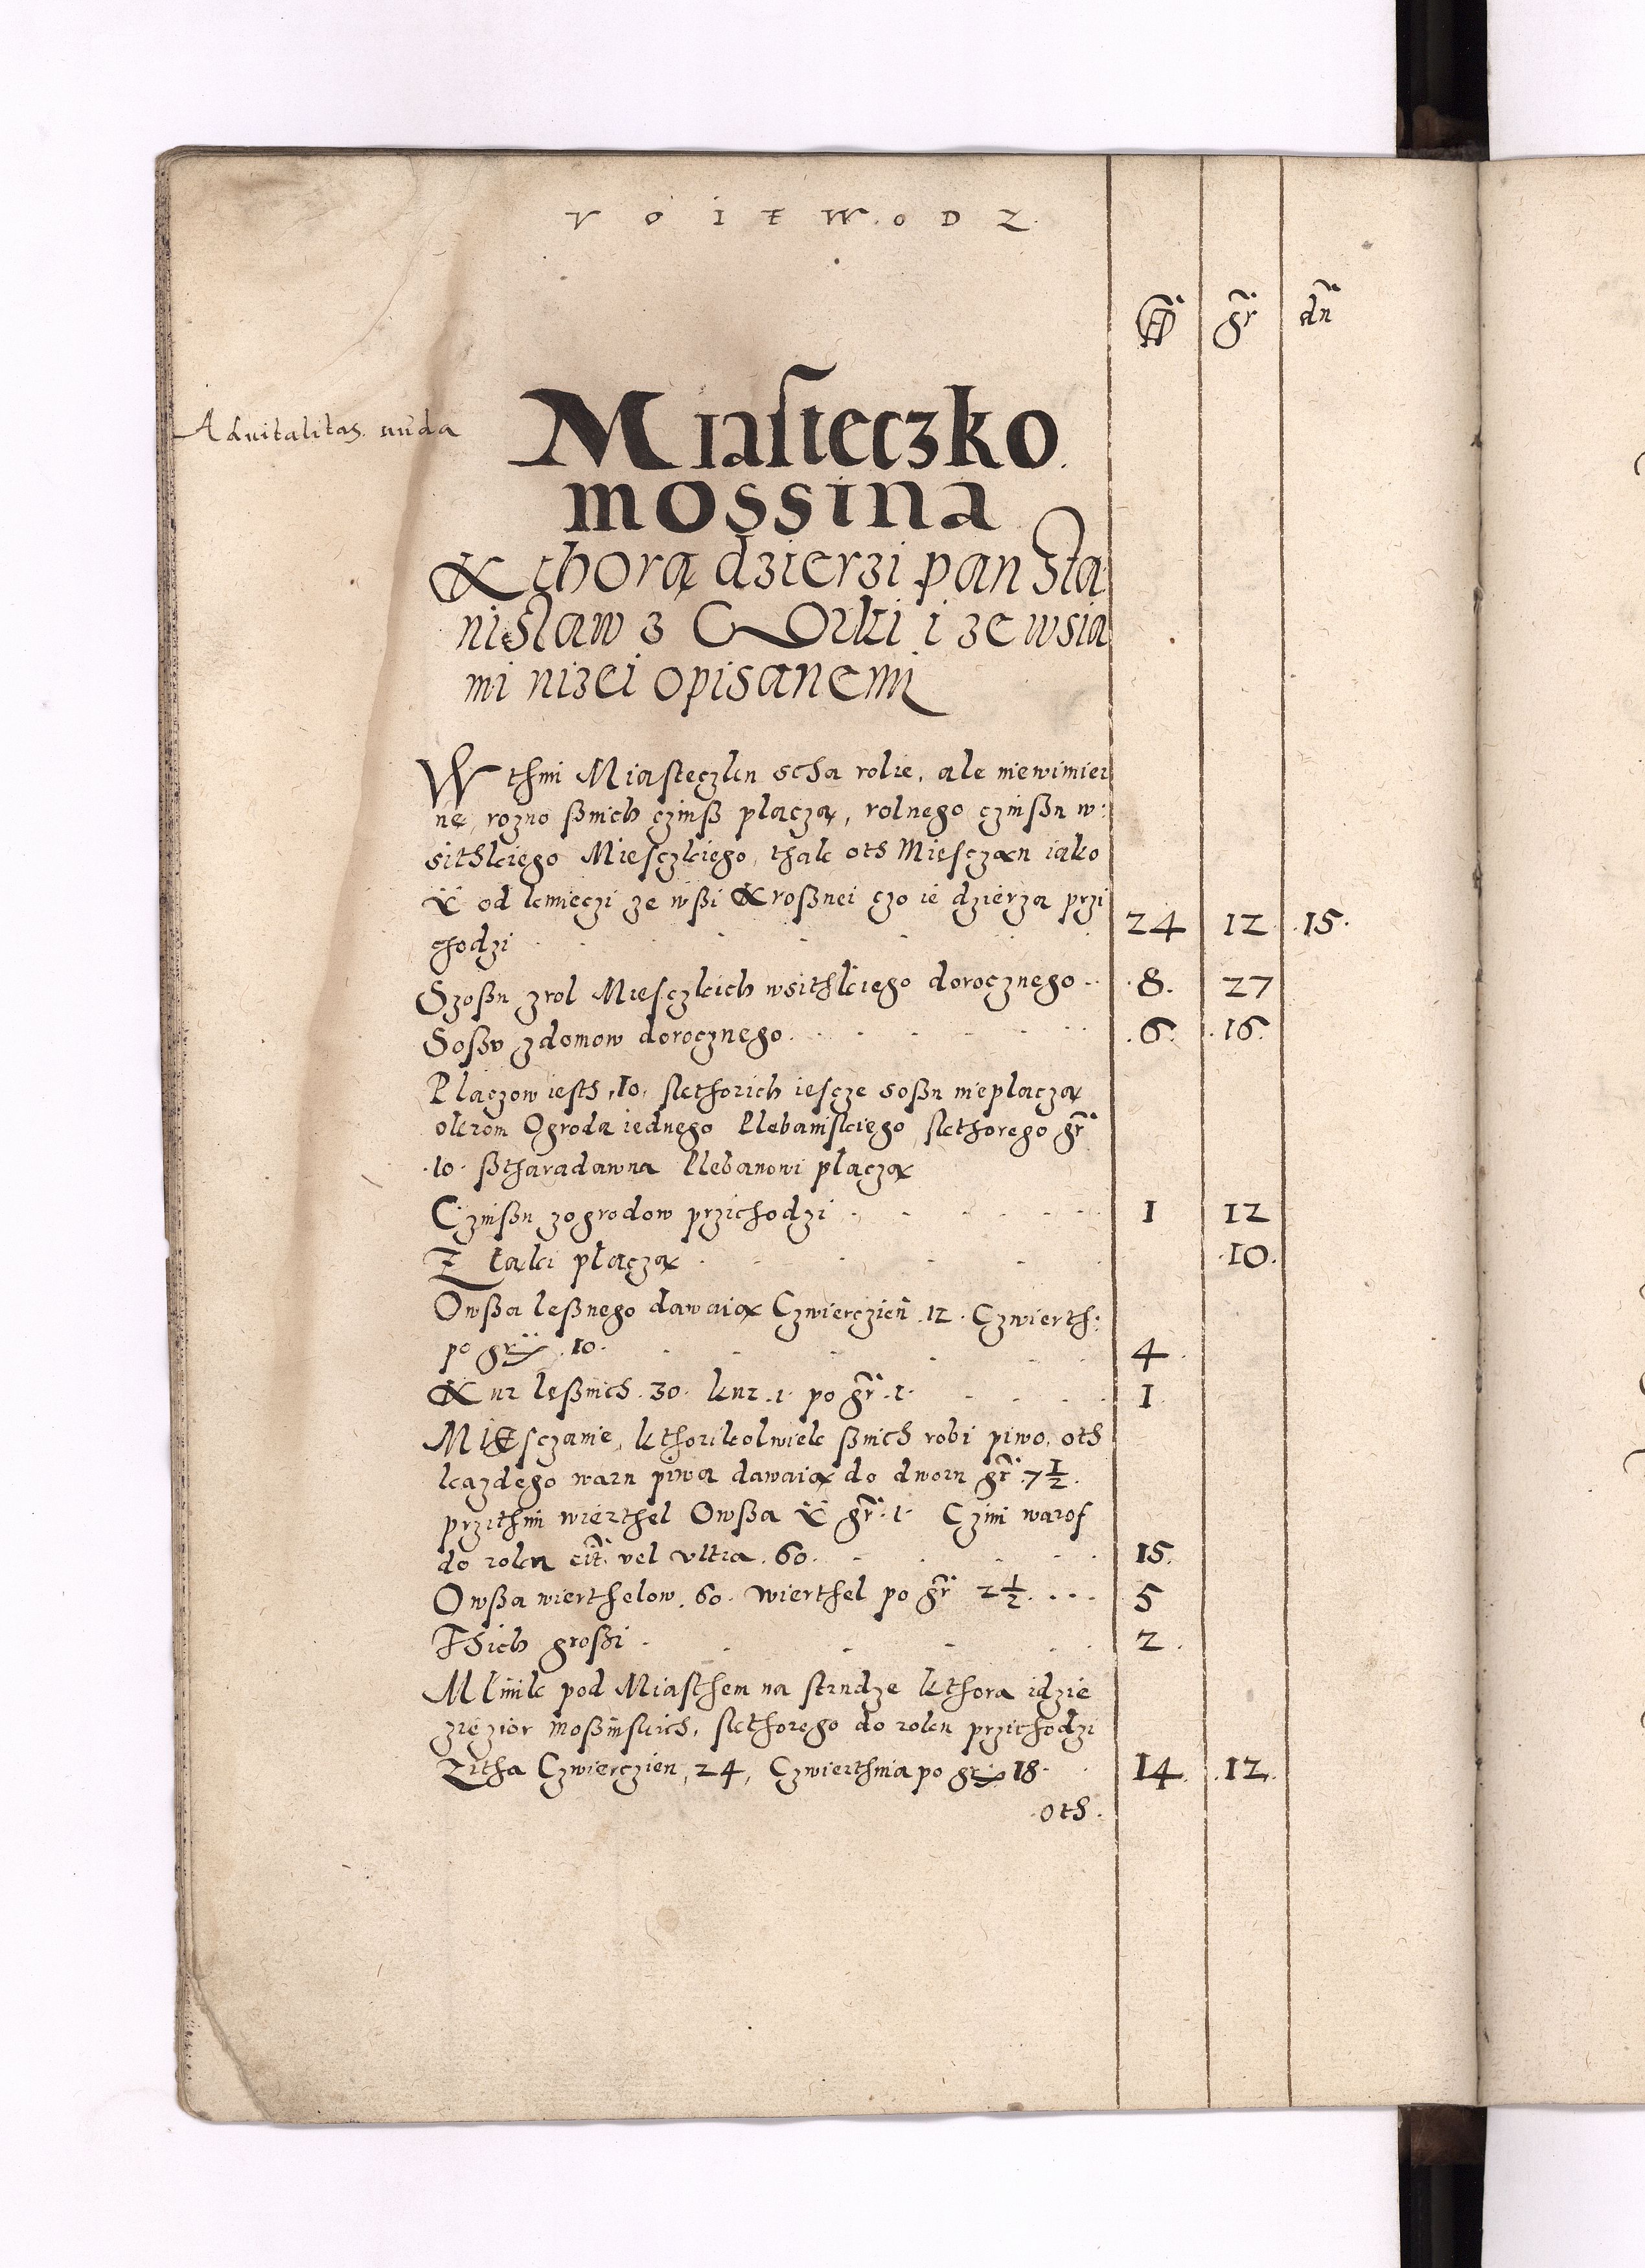 VOIEWODZ.
fl gr dn
Advitalitas nuda
Miasteczko
mossina
Kthorą dzierzi pan Sta
nislaw z Gorki i ze wsia
mi nizei opisanemi
W thim Miasteczku scha rolie, ale niewimier
ne, rozno ßnich czinß placzą, rolnego czinßu w:
sithkiego Miesczkiego, thak oth Miesczan iako
ÿ od kmieczi ze wßi Kroßnei czo ie dzierza przi
chodzi 24 12 15.
Szoßu zrol Miesczkich wsithkiego dorocznego 8. 27
Soßu zdomow dorocznego 6. 16.
Placzow iesth .10. skthorich iescze soßu nieplaczą
okrom Ogroda iednego Plebanskiego skthorego gr
.10. ßtharadawna Plebanowi placzą
Czinßu zogrodow przichodzi 1 12
Z Ląki placzą 10.
Owßa leßnego dawaią Czwierczien .12. Czwierth:
po gr .10. 4
Kur leßnich .30. kur .1. po gr .1. 1
Miesczanie, kthorikolwiek ßnich robi piwo, oth
kazdego waru piwa dawaią do dworu gr .7 1/2.
przithim wierthel Owßa ÿ gr .1. Czini warof
do roku cit. vel vltra .60. 15.
Owßa wierthelow .60. wierthel po gr 2 1/2. 5
Thich großi 2.
Mlinik pod Miasthem na strudze kthora idzie
ziezior moßinskich, skthorego do roku przichodzi
Zitha Czwierczien, 24, Czwierthnia po gr 18 14. 12.
oth.